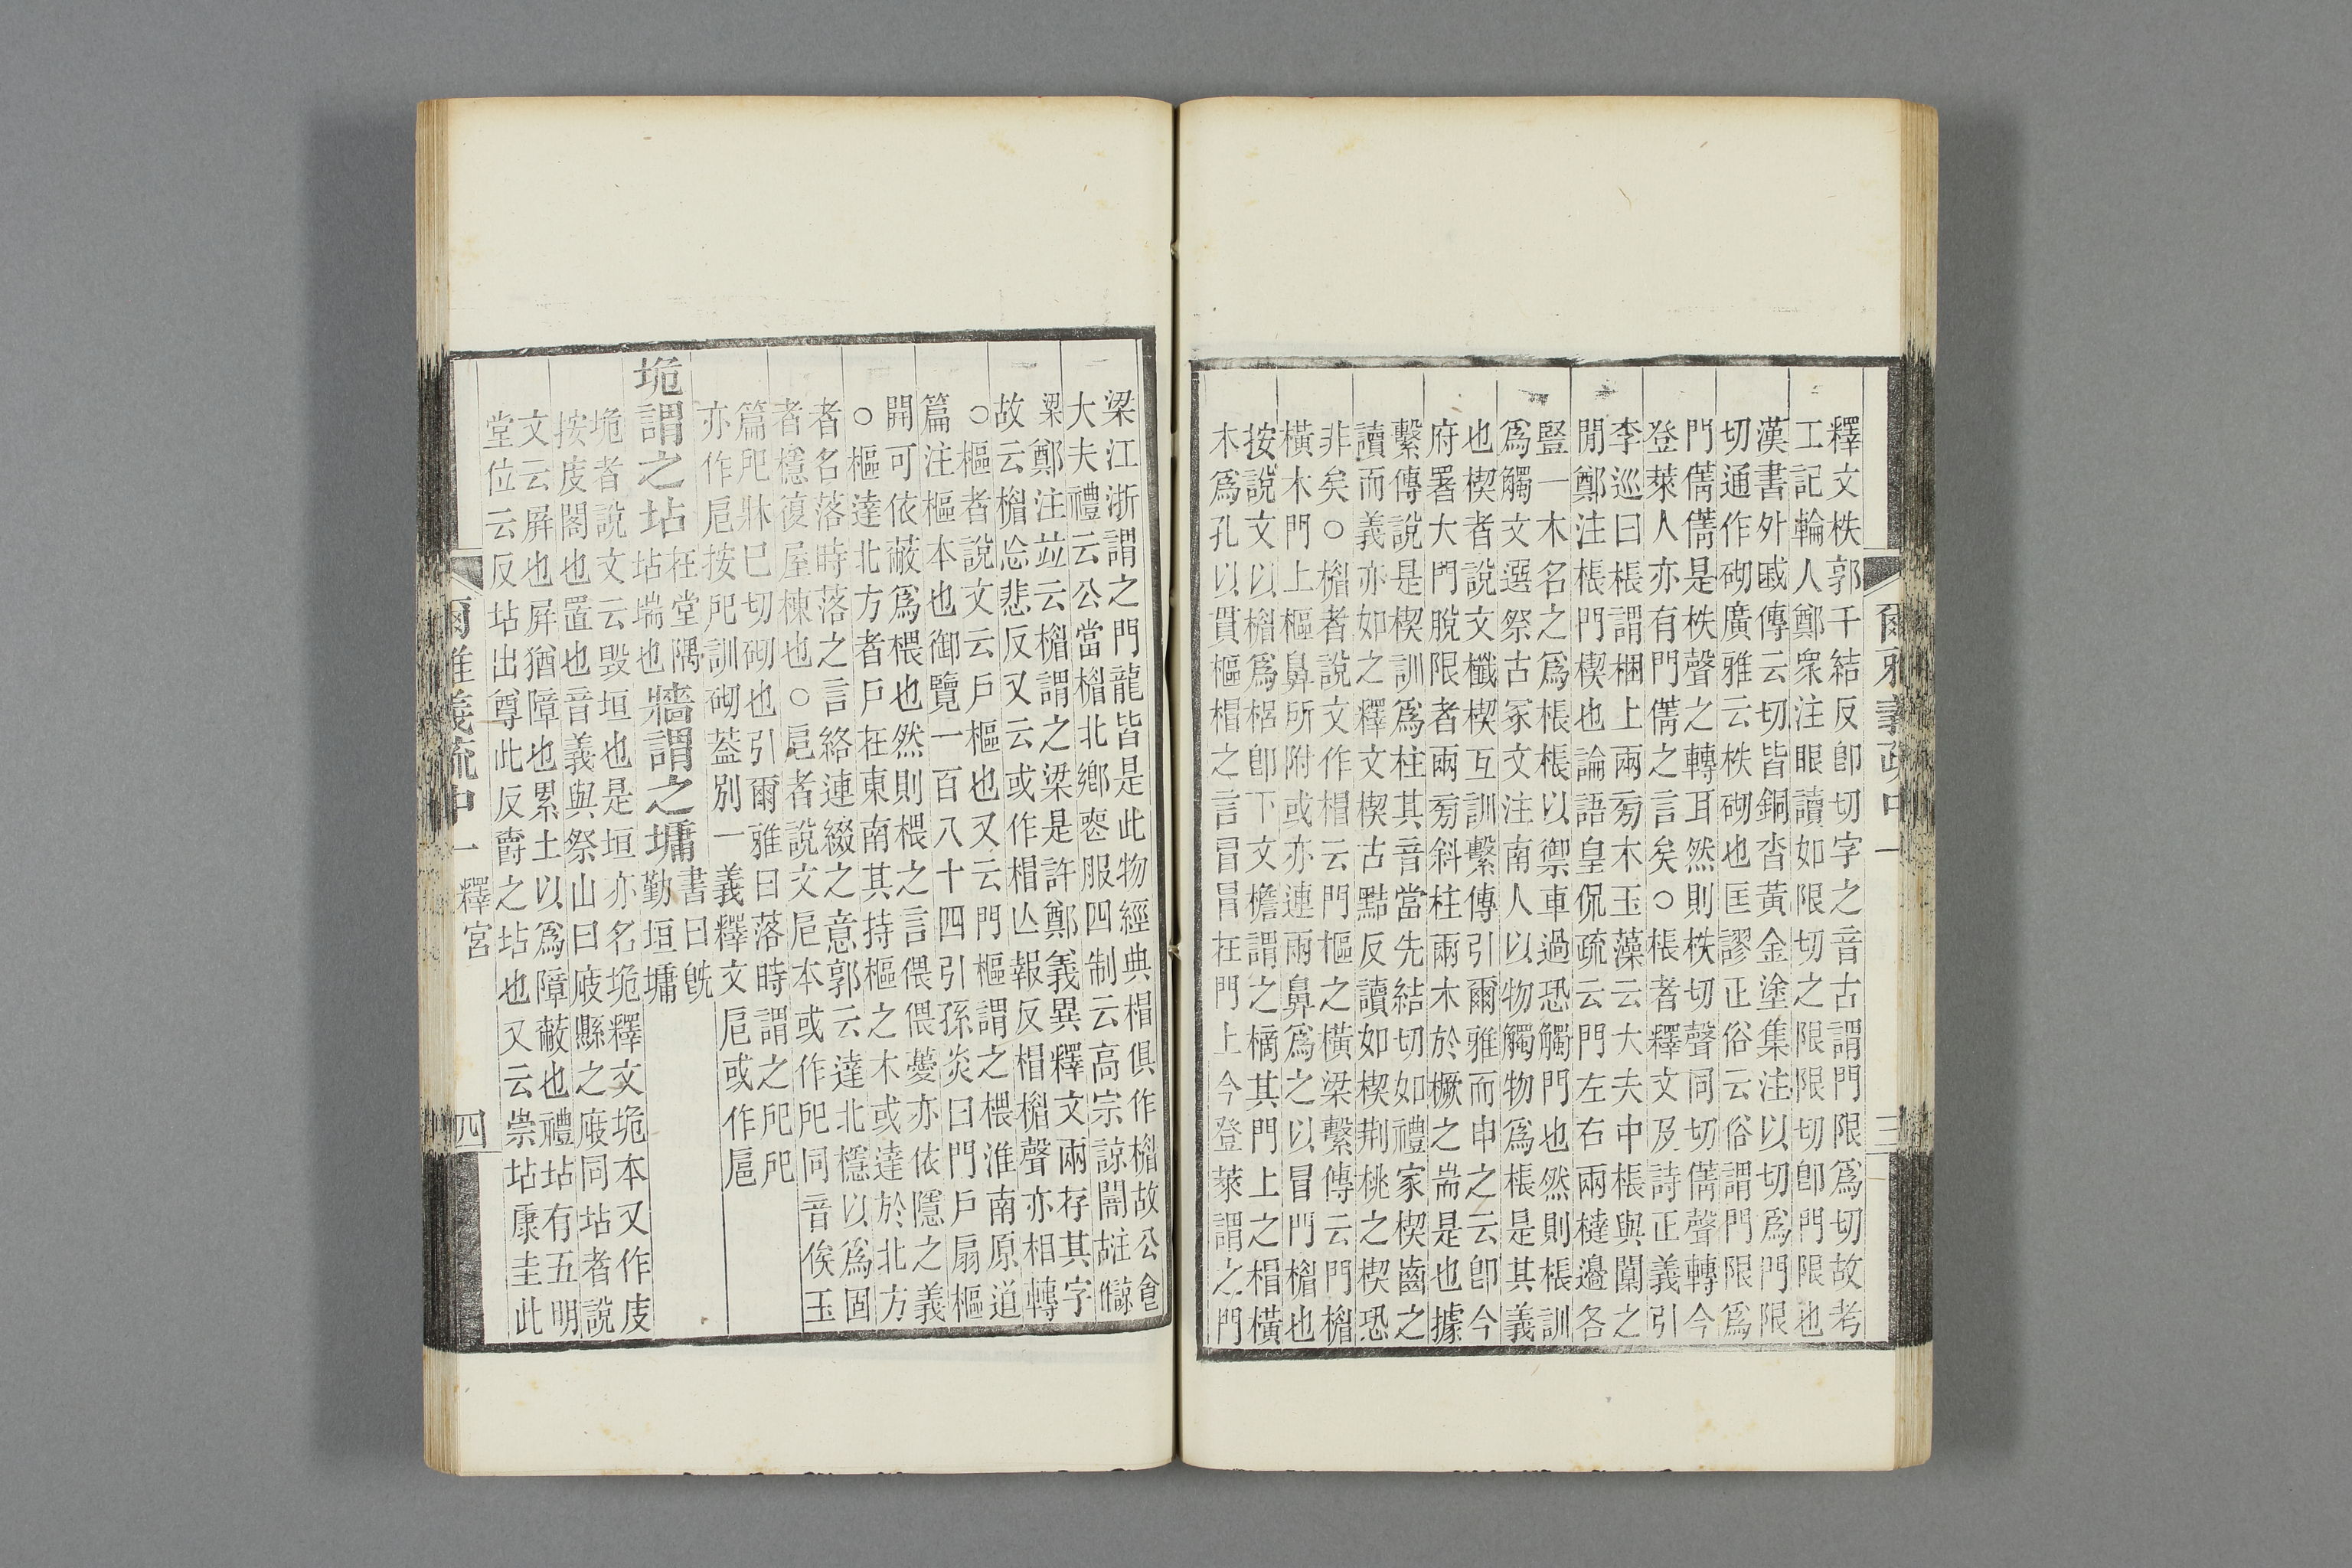 釋文柣郭千結反卽切字之音古謂門限爲切故考
工記輪人鄭衆注眼讀如限切之限限切卽門限也
漢書外戚傳云切皆銅沓黃金塗集注以切爲門限
切通作砌廣雅云柣砌也匡謬正俗云俗謂門限爲
門蒨蒨是柣聲之轉耳然則柣切聲同切蒨聲轉今
登萊人亦有門蒨之言矣○棖者釋文及詩正義引
李巡曰棖謂梱上兩㫄木玉藻云大夫中棖與闑之
閒鄭注棖門楔也論語皇侃疏云門左右兩橽邊各
豎一木名之爲棖棖以禦車過恐觸門也然則棖訓
爲觸文選祭古冢文注南人以物觸物爲棖是其義
也楔者說文櫼楔互訓繫傳引爾雅而申之云卽今
府署大門脫限者兩㫄斜柱兩木於橛之耑是也據
繫傳說是楔訓爲柱其音當先結切如禮家楔齒之
讀而義亦如之釋文楔古黠反讀如楔荆桃之楔恐
非矣○楣者說文作楣云門樞之橫梁繫傳云門楣
橫木門上樞鼻所附或亦連兩鼻爲之以冒門楣也
按說文以楣爲梠卽下文檐謂之樀其門上之楣橫
木爲孔以貫樞楣之言冒冒在門上今登萊謂之門
梁江浙謂之門龍皆是此物經典楣俱作楣故公食
大夫禮云公當楣北鄉喪服四制云高宗諒闇注諒
梁鄭注竝云楣謂之梁是許鄭義異釋文兩存其字
故云楣忘悲反又云或作楣亡報反楣楣聲亦相轉
○樞者說文云戶樞也又云門樞謂之椳淮南原道
篇注樞本也御覽一百八十四引孫炎曰門戶扇樞
開可依蔽爲椳也然則椳之言偎偎薆亦依隱之義
○樞達北方者戶在東南其持樞之木或達於北方
者名落時落之言絡連綴之意郭云達北檼以爲固
者檼復屋棟也○戹者說文戹本或作戺同音俟玉
篇戺牀巳切砌也引爾雅曰落時謂之戺戺
亦作戹按戺訓砌蓋別一義釋文戹或作扈
垝謂之坫在堂隅坫㟨也牆謂之墉書曰旣勤垣墉
垝者說文云毀垣也是垣亦名垝釋文垝本又作庋
按庋閣也置也音義與祭山曰庪縣之庪同坫者說
文云屛也屛猶障也累土以爲障蔽也禮坫有五明
堂位云反坫出尊此反爵之坫也又云崇坫康圭此
爾雅義疏中一 釋宮 四
爾雅義疏中一 三